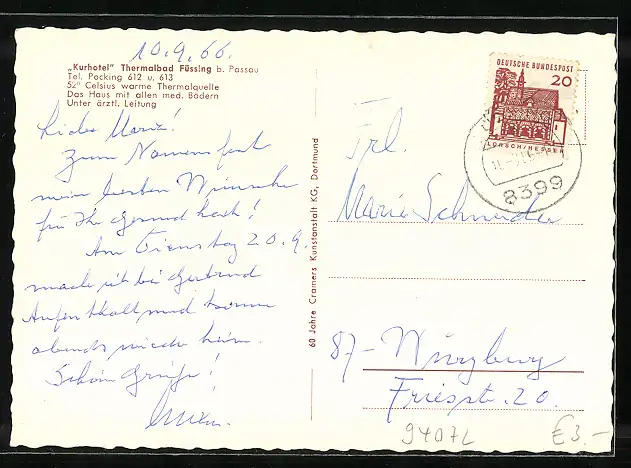 10.9.66.
„Kurhotel" Thermalbad Füssing b. Passau
Tel. Pocking 612 u. 613
52° Celsius warme Thermalquelle
Das Haus mit allen med. Bädern
Unter ärztl. Leitung
Zum Namensfest
mein besten Wünsche
für
Am Dienstag 20.9.
mach ich bei Gertrud
Aufenthalt und komme
abends wieder heim.
Schöne Grüße!
60 Jahre Cramers Kunstanstalt KG, Dortmund
DEUTSCHE BUNDESPOST
20
LORSCH/HESSEN
8399
Frl.
Maria Schneider
87- Würzburg
Friesstr. 20.
94072
€3.-